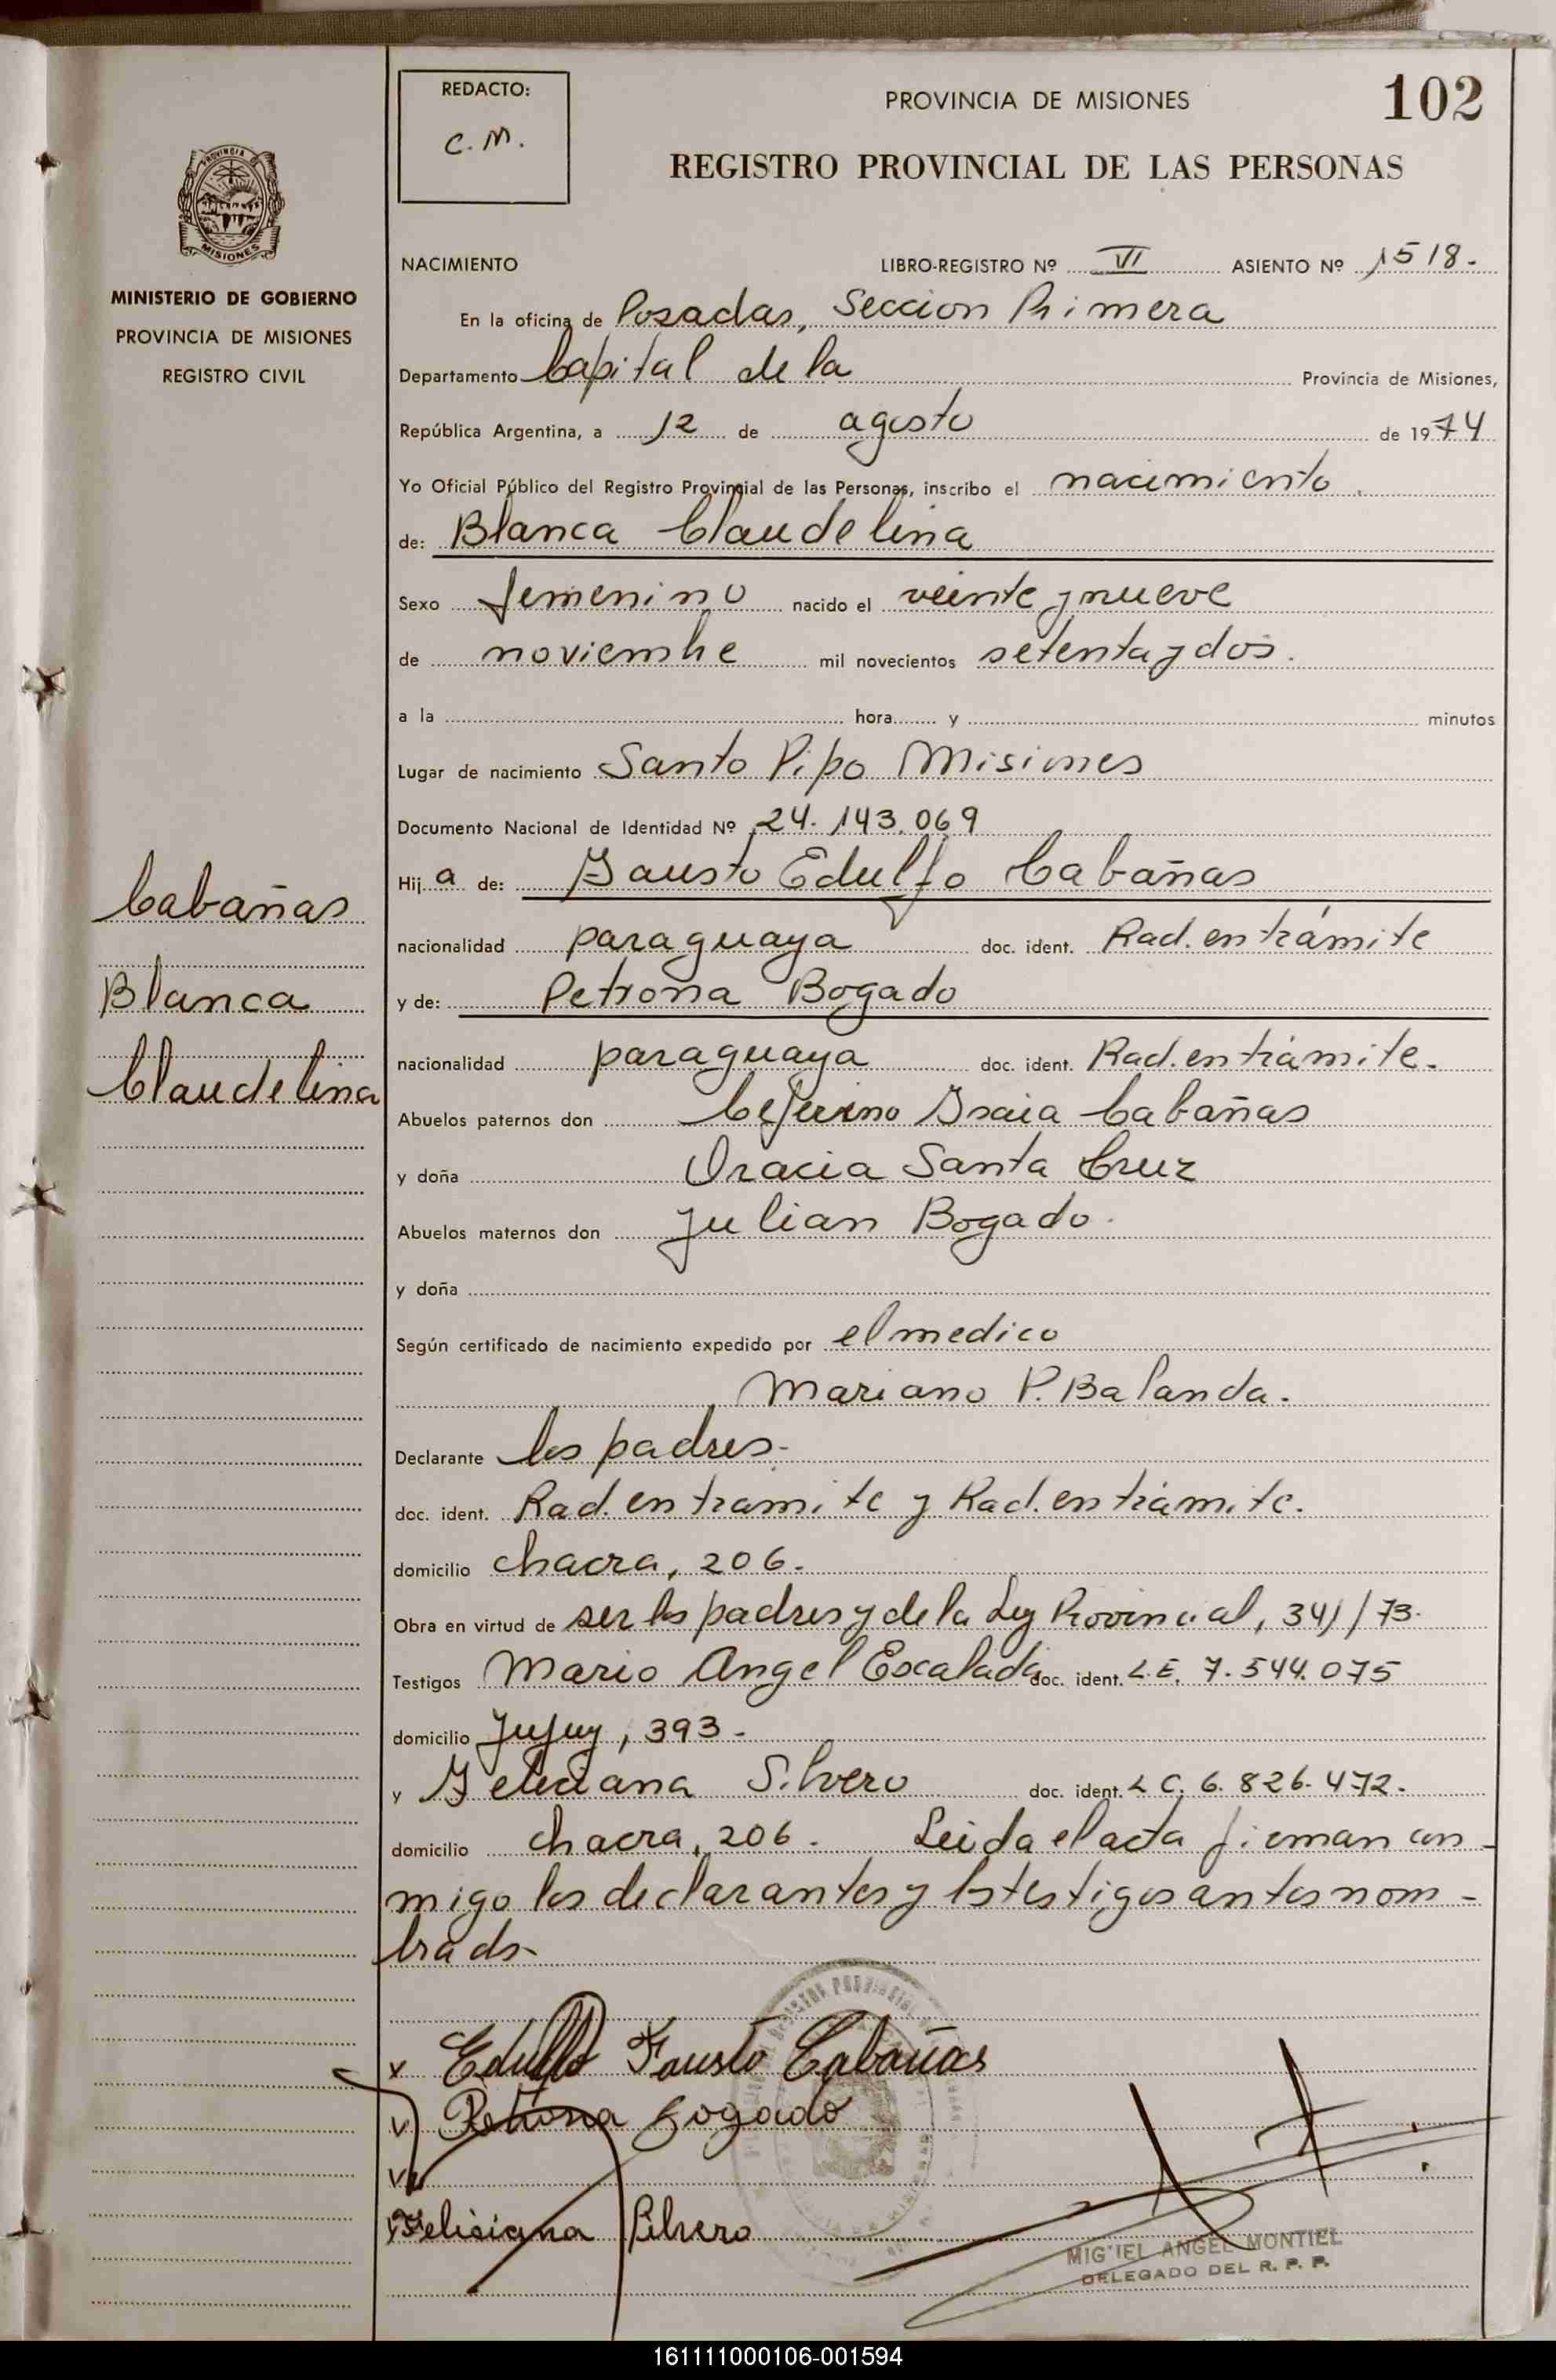 REDACTO:
C. M.
PROVINCIA DE MISIONES
102
REGISTRO PROVINCIAL DE LAS PERSONAS
PROVINCIA DE
MISIONES
MINISTERIO DE GOBIERNO
PROVINCIA DE MISIONES
REGISTRO CIVIL
NACIMIENTO LIBRO-REGISTRO Nº VI ASIENTO Nº 1518.
En la oficina de Posadas, Seccion Primera
Departamento Capital de la Provincia de Misiones,
República Argentina, a 12 de agosto de 1974
Yo Oficial Público del Registro Provincial de las Personas, inscribo el nacimiento.
de: Blanca Claudelina
Sexo femenino nacido el veinte y nueve
de noviembre mil novecientos setenta y dos.
a la hora y minutos
Lugar de nacimiento Santo Pipo Misiones
Documento Nacional de Identidad Nº 24.143.069
Hij a de: Fausto Edulfo Cabañas
nacionalidad paraguaya doc. ident. Rad. en trámite
y de: Petrona Bogado
nacionalidad paraguaya doc. ident. Rad. en trámite.
Abuelos paternos don Ceferino Isaia Cabañas
y doña Oracia Santa Cruz
Abuelos maternos don Julian Bogado.
y doña
Según certificado de nacimiento expedido por el medico
Mariano P. Balanda.
Declarante los padres.-
doc. ident. Rad. en tramite y Rad. en trámite.
domicilio chacra, 206.
Obra en virtud de ser los padres y de la Ley Provincial, 341/73.
Testigos Mario Angel Escalada doc. ident. L.E. 7.544.075
domicilio Jujuy, 393.-
y Feliciana Silvero doc. ident. L C. 6.826.472.
domicilio chacra, 206. Leida el acta firman con-
migo los declarantes y los testigos antes nom-
brados-
Cabañas
Blanca
Claudelina
x Edulfo Fausto Cabañas
v Petrona Bogado
v
x Felisiana Silvero
MIGUEL ANGEL MONTIEL
DELEGADO DEL R. P. P.
161111000106-001594